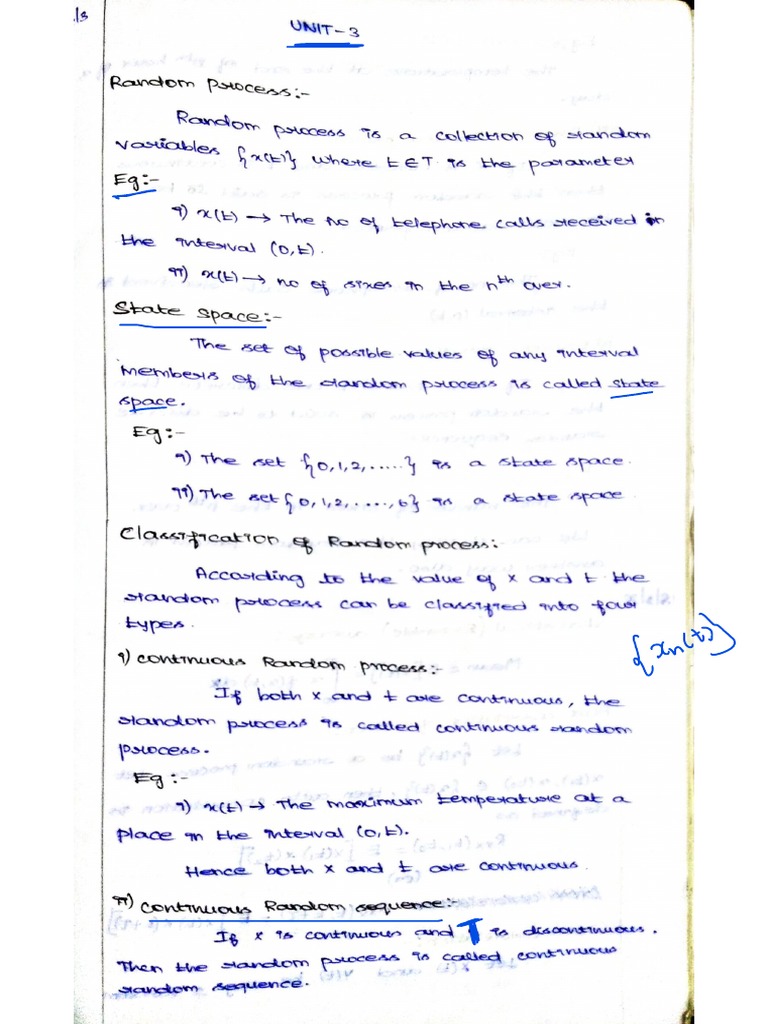 1/3
UNIT-3
Random process:-
Random process is a collection of random
variables {x(t)} where t ∈ T is the parameter
Eg:-
i) x(t) → The no of telephone calls received in
the interval (0,t).
ii) x(t) → no of sixes in the nth over.
State space:-
The set of possible values of any interval
members of the random process is called state
space.
Eg:-
i) The set {0,1,2,.....} is a state space.
ii) The set {0,1,2,....,6} is a state space
Classification of Random process:
According to the value of x and t the
random process can be classified into four
types.
{xn(t)}
i) continuous Random process:-
If both x and t are continuous, the
random process is called continuous random
process.
Eg:-
i) x(t) → The maximum temperature at a
place in the interval (0,t).
Hence both x and t are continuous.
ii) continuous Random sequence:-
If x is continuous and T is discontinuous.
Then the random process is called continuous
random sequence.